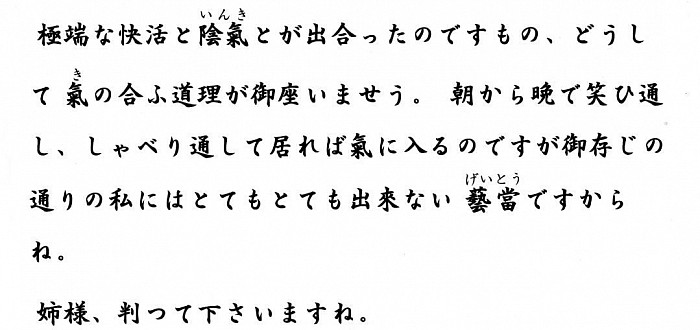 極端な快活と陰氣とが出合ったのですもの、どうし
て氣の合ふ道理が御座いませう。 朝から晩で笑ひ通
し、しゃべり通して居れば氣に入るのですが御存じの
通りの私にはとてもとても出來ない藝當ですから
ね。
姉様、判つて下さいますね。